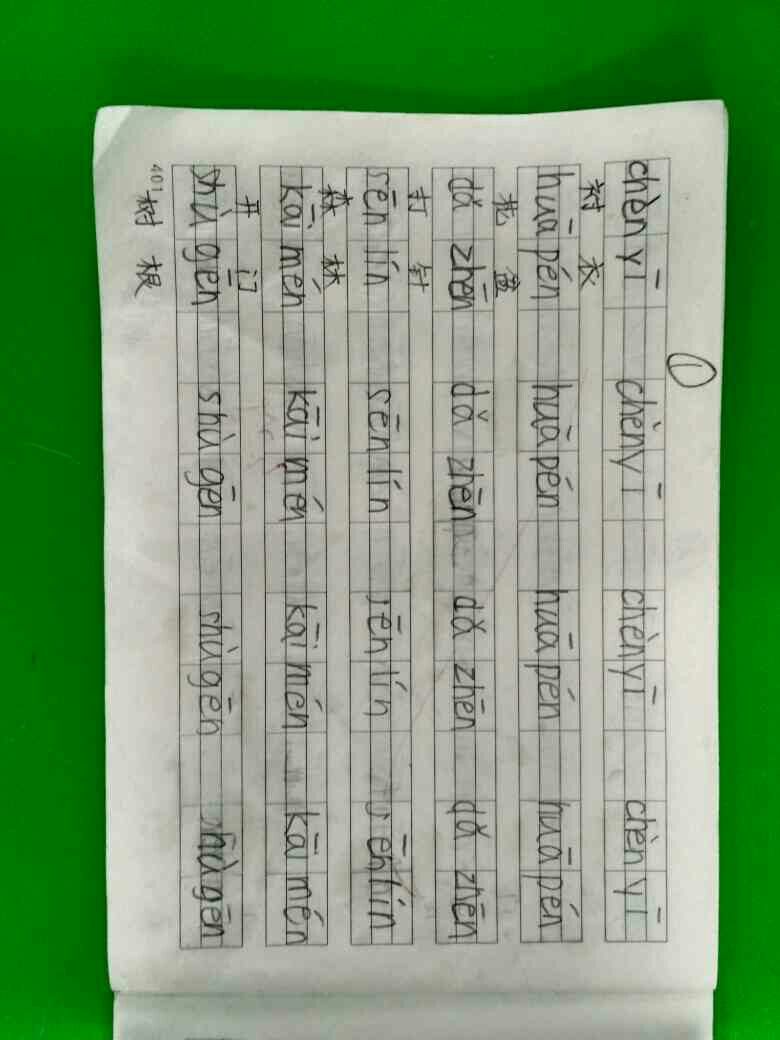 ①
chèn yī chèn yī chèn yī chèn yī
衬 衣
huā pén huā pén huā pén huā pén
花 盆
dǎ zhēn dǎ zhēn dǎ zhēn dǎ zhēn
打 针
sēn lín sēn lín sēn lín sēn lín
森 林
kāi mén kāi mén kāi mén kāi mén
开 门
shù gēn shù gēn shù gēn shù gēn
401 树 根